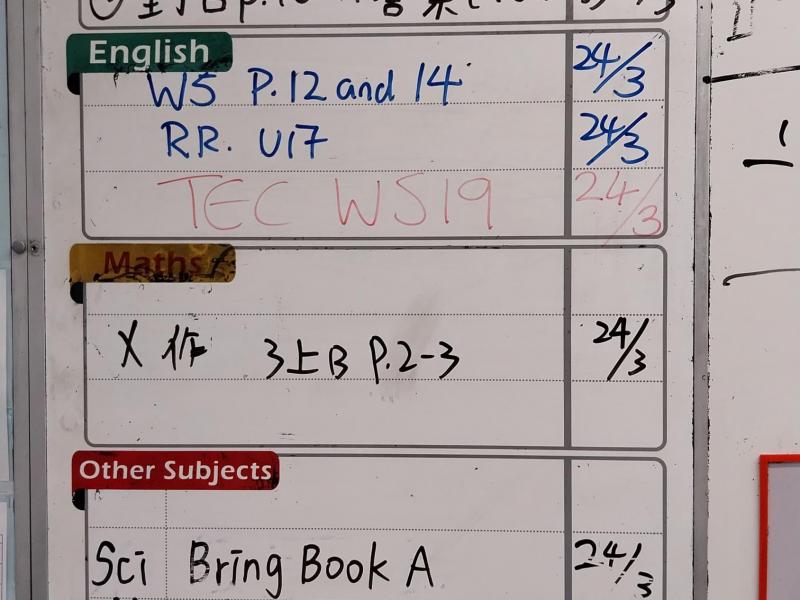 English
WS P.12 and 14 24/3
RR. U17 24/3
TEC WS19 24/3
Maths
X 作 3上B P.2-3 24/3
Other Subjects
Sci Bring Book A 24/3